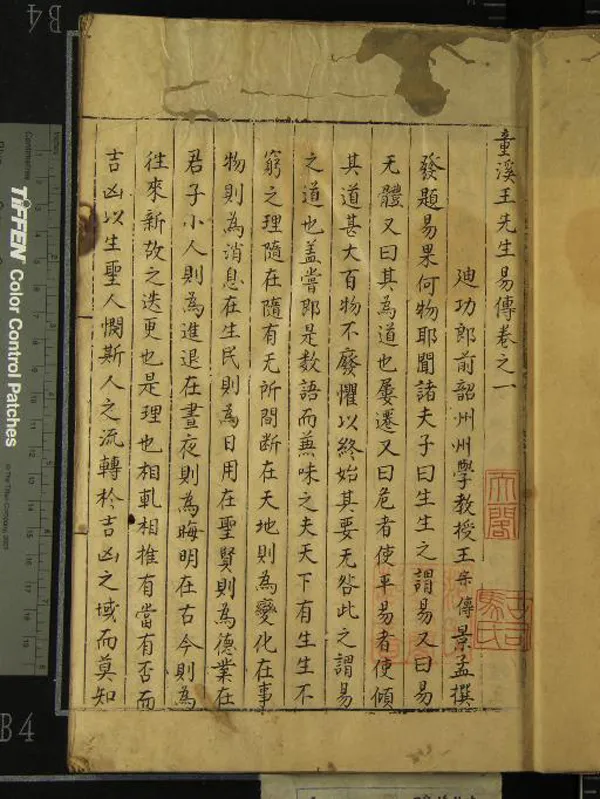 童溪王先生易傳卷之一
迪功郎前韶州州學教授王宗傳景孟撰
發題易果何物耶聞諸夫子曰生生之謂易又曰易
无體又曰其為道也屢遷又曰危者使平易者使傾
其道甚大百物不廢懼以終始其要无咎此之謂易
之道也盖嘗即是数語而兼味之夫天下有生生不
窮之理隨在隨有无所間断在天地則為變化在事
物則為消息在生民則為日用在聖賢則為德業在
君子小人則為進退在晝夜則為晦明在古今則為
徃來新故之迭更也是理也相軋相推有當有否而
吉凶以生聖人憫斯人之流轉於吉凶之域而莫知
TIFFEN Color Control Patches
B4
B4